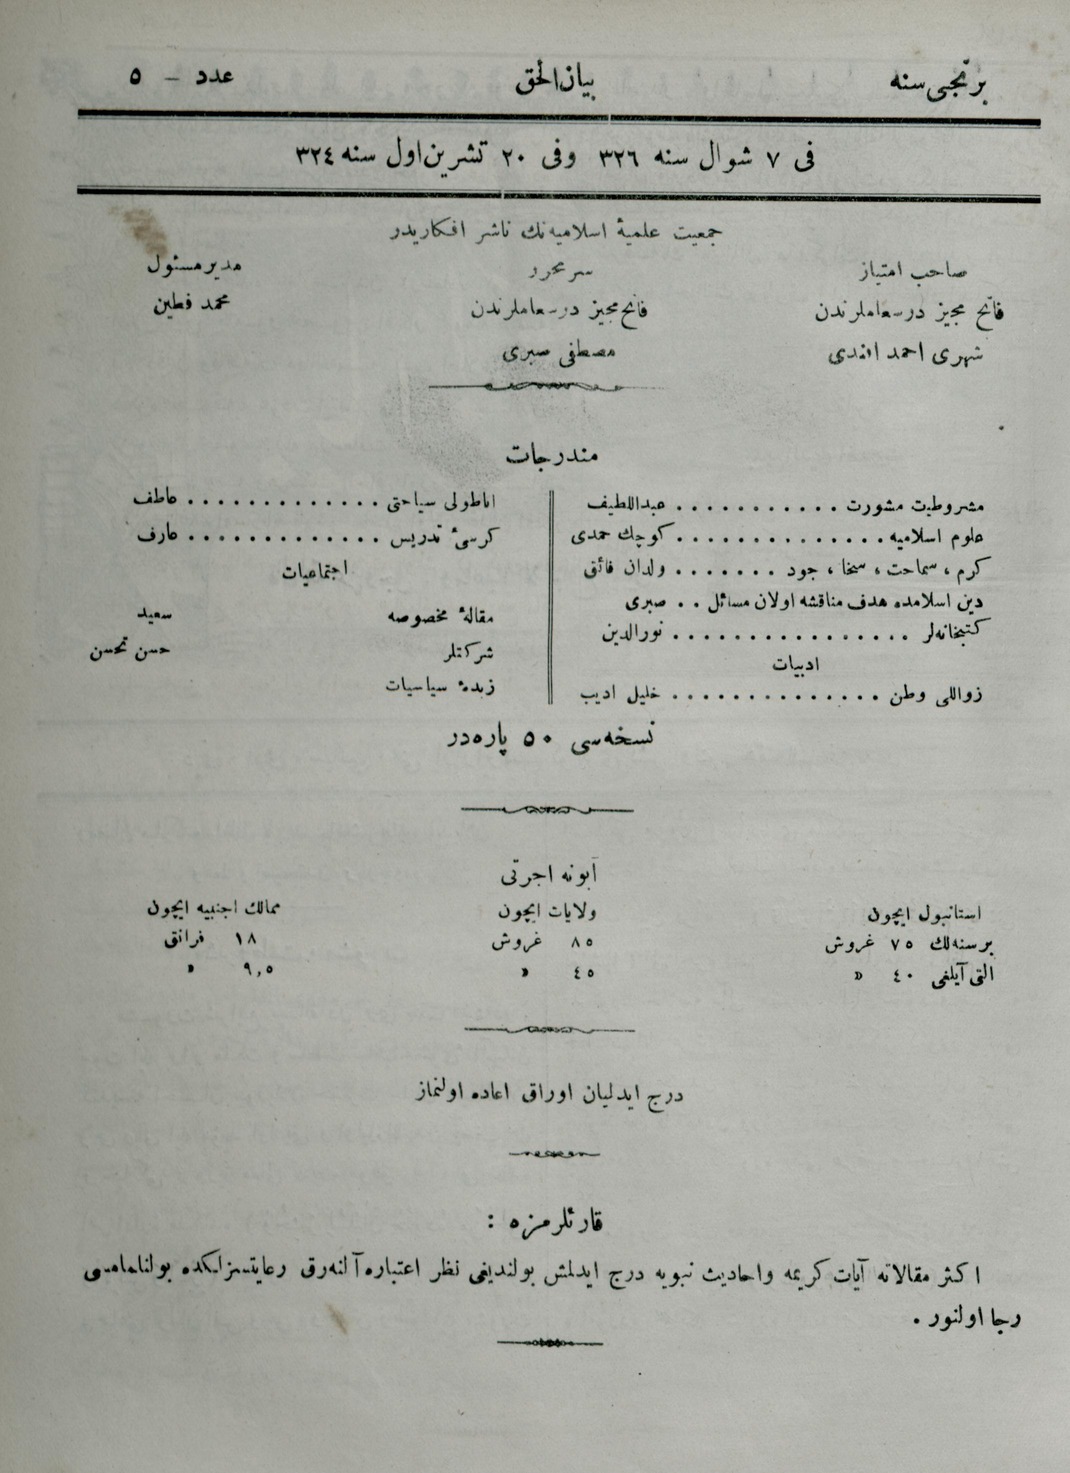 برنجی سنه
بیان الحق
عدد – ٥
فی ٧ شوال سنه ٣٢٦ وفی ٢٠ تشرین اول سنه ٣٢٤
جمعیت علمیهٔ اسلامیه نك ناشر افكاریدر
صاحب امتیاز
فاتح مجیز درسعاملرندن
شهری احمد افندی
سر محرر
فاتح مجیز درسعاملرندن
مصطفی صبری
مدیر مسئول
محمد فطین
مندرجات
مشروطیت مشورت . . . . . . . . . . . عبداللطیف
علوم اسلامیه . . . . . . . . . . . . . . کوچك حمدی
کرم ، سماحت ، سخا ، جود . . . . . . . ولدان فائق
دین اسلامده هدف مناقشه اولان مسائل . . صبری
کتبخانه‌لر . . . . . . . . . . . . . . . . نورالدین
ادبیات
زواللی وطن . . . . . . . . . . . . . . خلیل ادیب
اناطولی سیاحتی . . . . . . . . . . . . . عاطف
کرسیٔ تدریس . . . . . . . . . . . . . عارف
اجتماعیات
مقالهٔ مخصوصه سعید
شرکتلر حسن تحسن
زبدهٔ سیاسیات
نسخه‌سی ٥٠ پاره‌در
آبونه اجرتی
استانبول ایچون
برسنه‌لك ٧٥ غروش
التی آیلغی ٤٠ »
ولایات ایچون
٨٥ غروش
٤٥ »
ممالك اجنبیه ایچون
١٨ فرانق
٩,٥ »
درج ایدلمیان اوراق اعاده اولنماز
قارئلرمزه :
اکثر مقالاته آیات کریمه واحادیث نبویه درج ایدلمش بولندیغی نظر اعتباره آلنه‌رق رعایتسزلکده بولنامامسی
رجا اولنور .